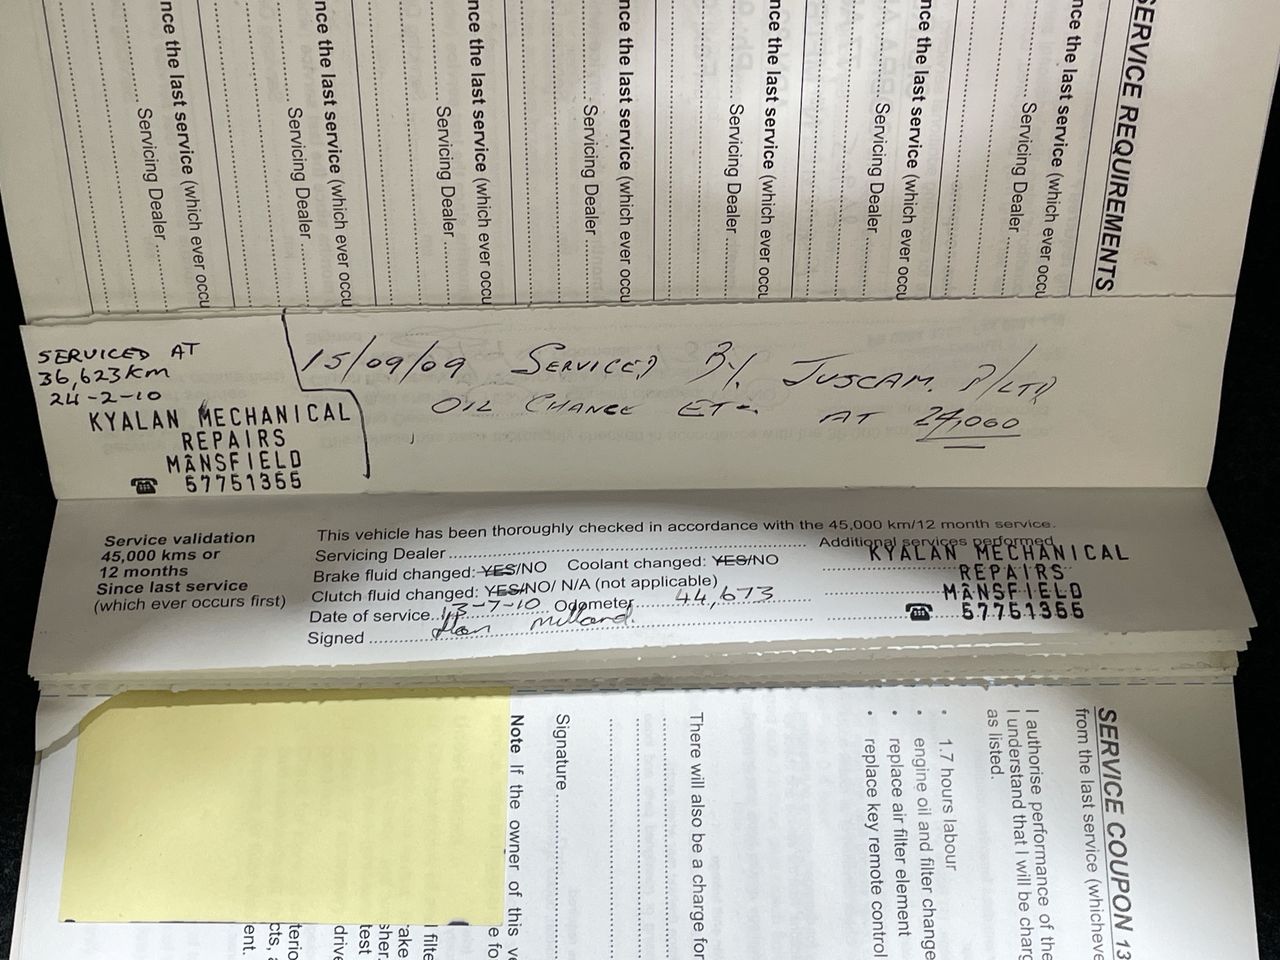 SERVICE REQUIREMENTS
nce the last service (which ever occu
Servicing Dealer
nce the last service (which ever occu
Servicing Dealer
nce the last service (which ever occu
Servicing Dealer
nce the last service (which ever occu
Servicing Dealer
nce the last service (which ever occu
Servicing Dealer
nce the last service (which ever occu
Servicing Dealer
nce the last service (which ever occu
Servicing Dealer
SERVICED AT
36,623km
24-2-10
KYALAN MECHANICAL
REPAIRS
MANSFIELD
☎ 57751355
15/09/09 SERVICED BY JUSCAM P/LTD
OIL CHANGE ETC AT 24,000
Service validation
45,000 kms or
12 months
Since last service
(which ever occurs first)
This vehicle has been thoroughly checked in accordance with the 45,000 km/12 month service.
Servicing Dealer
Additional services performed
Brake fluid changed: YES/NO Coolant changed: YES/NO
Clutch fluid changed: YES/NO/ N/A (not applicable)
Date of service 13-7-10 Odometer 44,673
Signed
KYALAN MECHANICAL
REPAIRS
MANSFIELD
☎ 57751355
SERVICE COUPON 13
from the last service (whicheve
I authorise performance of the
I understand that I will be charg
as listed.
• 1.7 hours labour
• engine oil and filter change
• replace air filter element
• replace key remote control
There will also be a charge for
Signature
Note If the owner of this ve